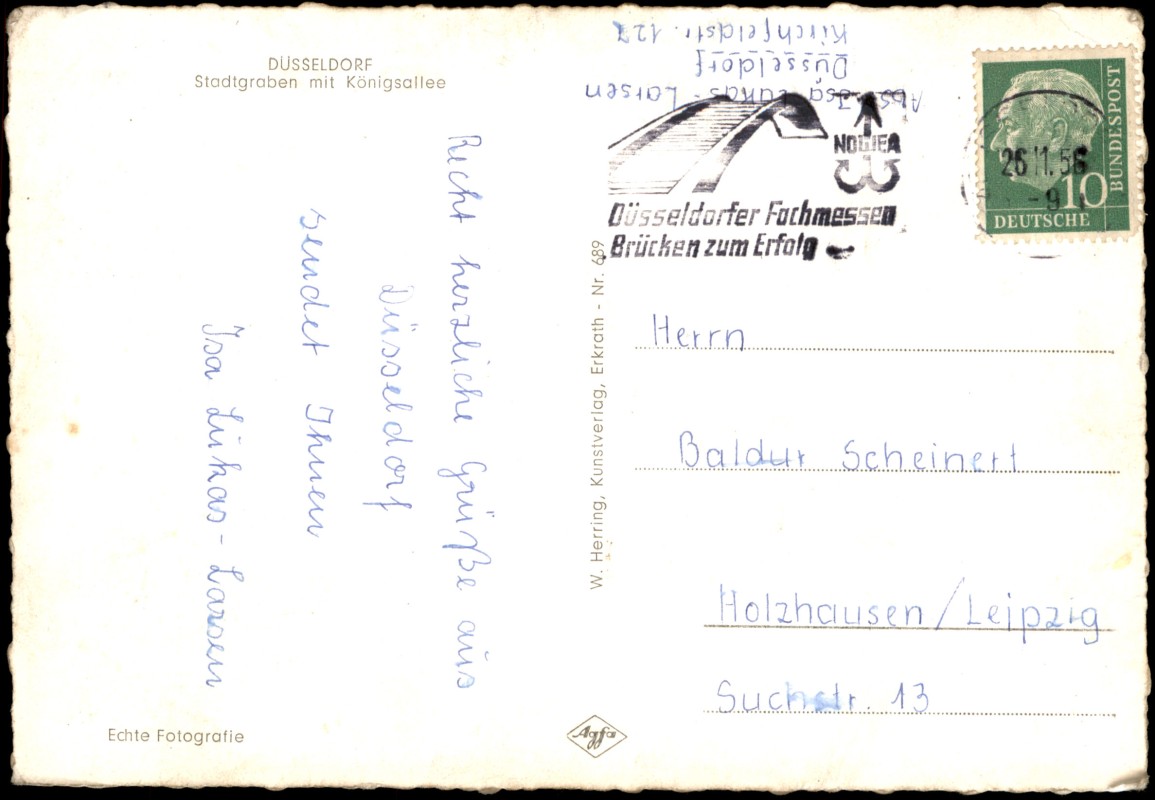 DÜSSELDORF
Stadtgraben mit Königsallee
Recht herzliche Grüße aus
Düsseldorf
sendet Ihnen
Isa Lukas-Larsen
Echte Fotografie
Agfa
W. Herring, Kunstverlag, Erkrath - Nr. 689
Abs. Isa Lukas-Larsen
Düsseldorf
Kirchfeldstr. 127
NOWEA
Düsseldorfer Fachmessen
Brücken zum Erfolg
26.11.56
-9
10
DEUTSCHE
BUNDESPOST
Herrn
Baldur Scheinert
Holzhausen/Leipzig
Suchstr. 13